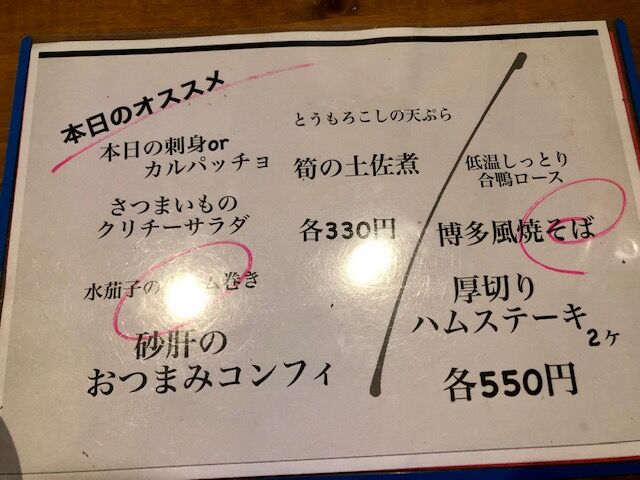 本日のオススメ
本日の刺身or
カルパッチョ
さつまいもの
クリチーサラダ
水茄子の ム巻き
砂肝の
おつまみコンフィ
とうもろこしの天ぷら
筍の土佐煮
各330円
低温しっとり
合鴨ロース
博多風焼そば
厚切り
ハムステーキ
2ヶ
各550円